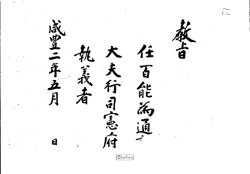 敎旨
任百能為通
大夫行司憲府
執義者
咸豊二年五月 日